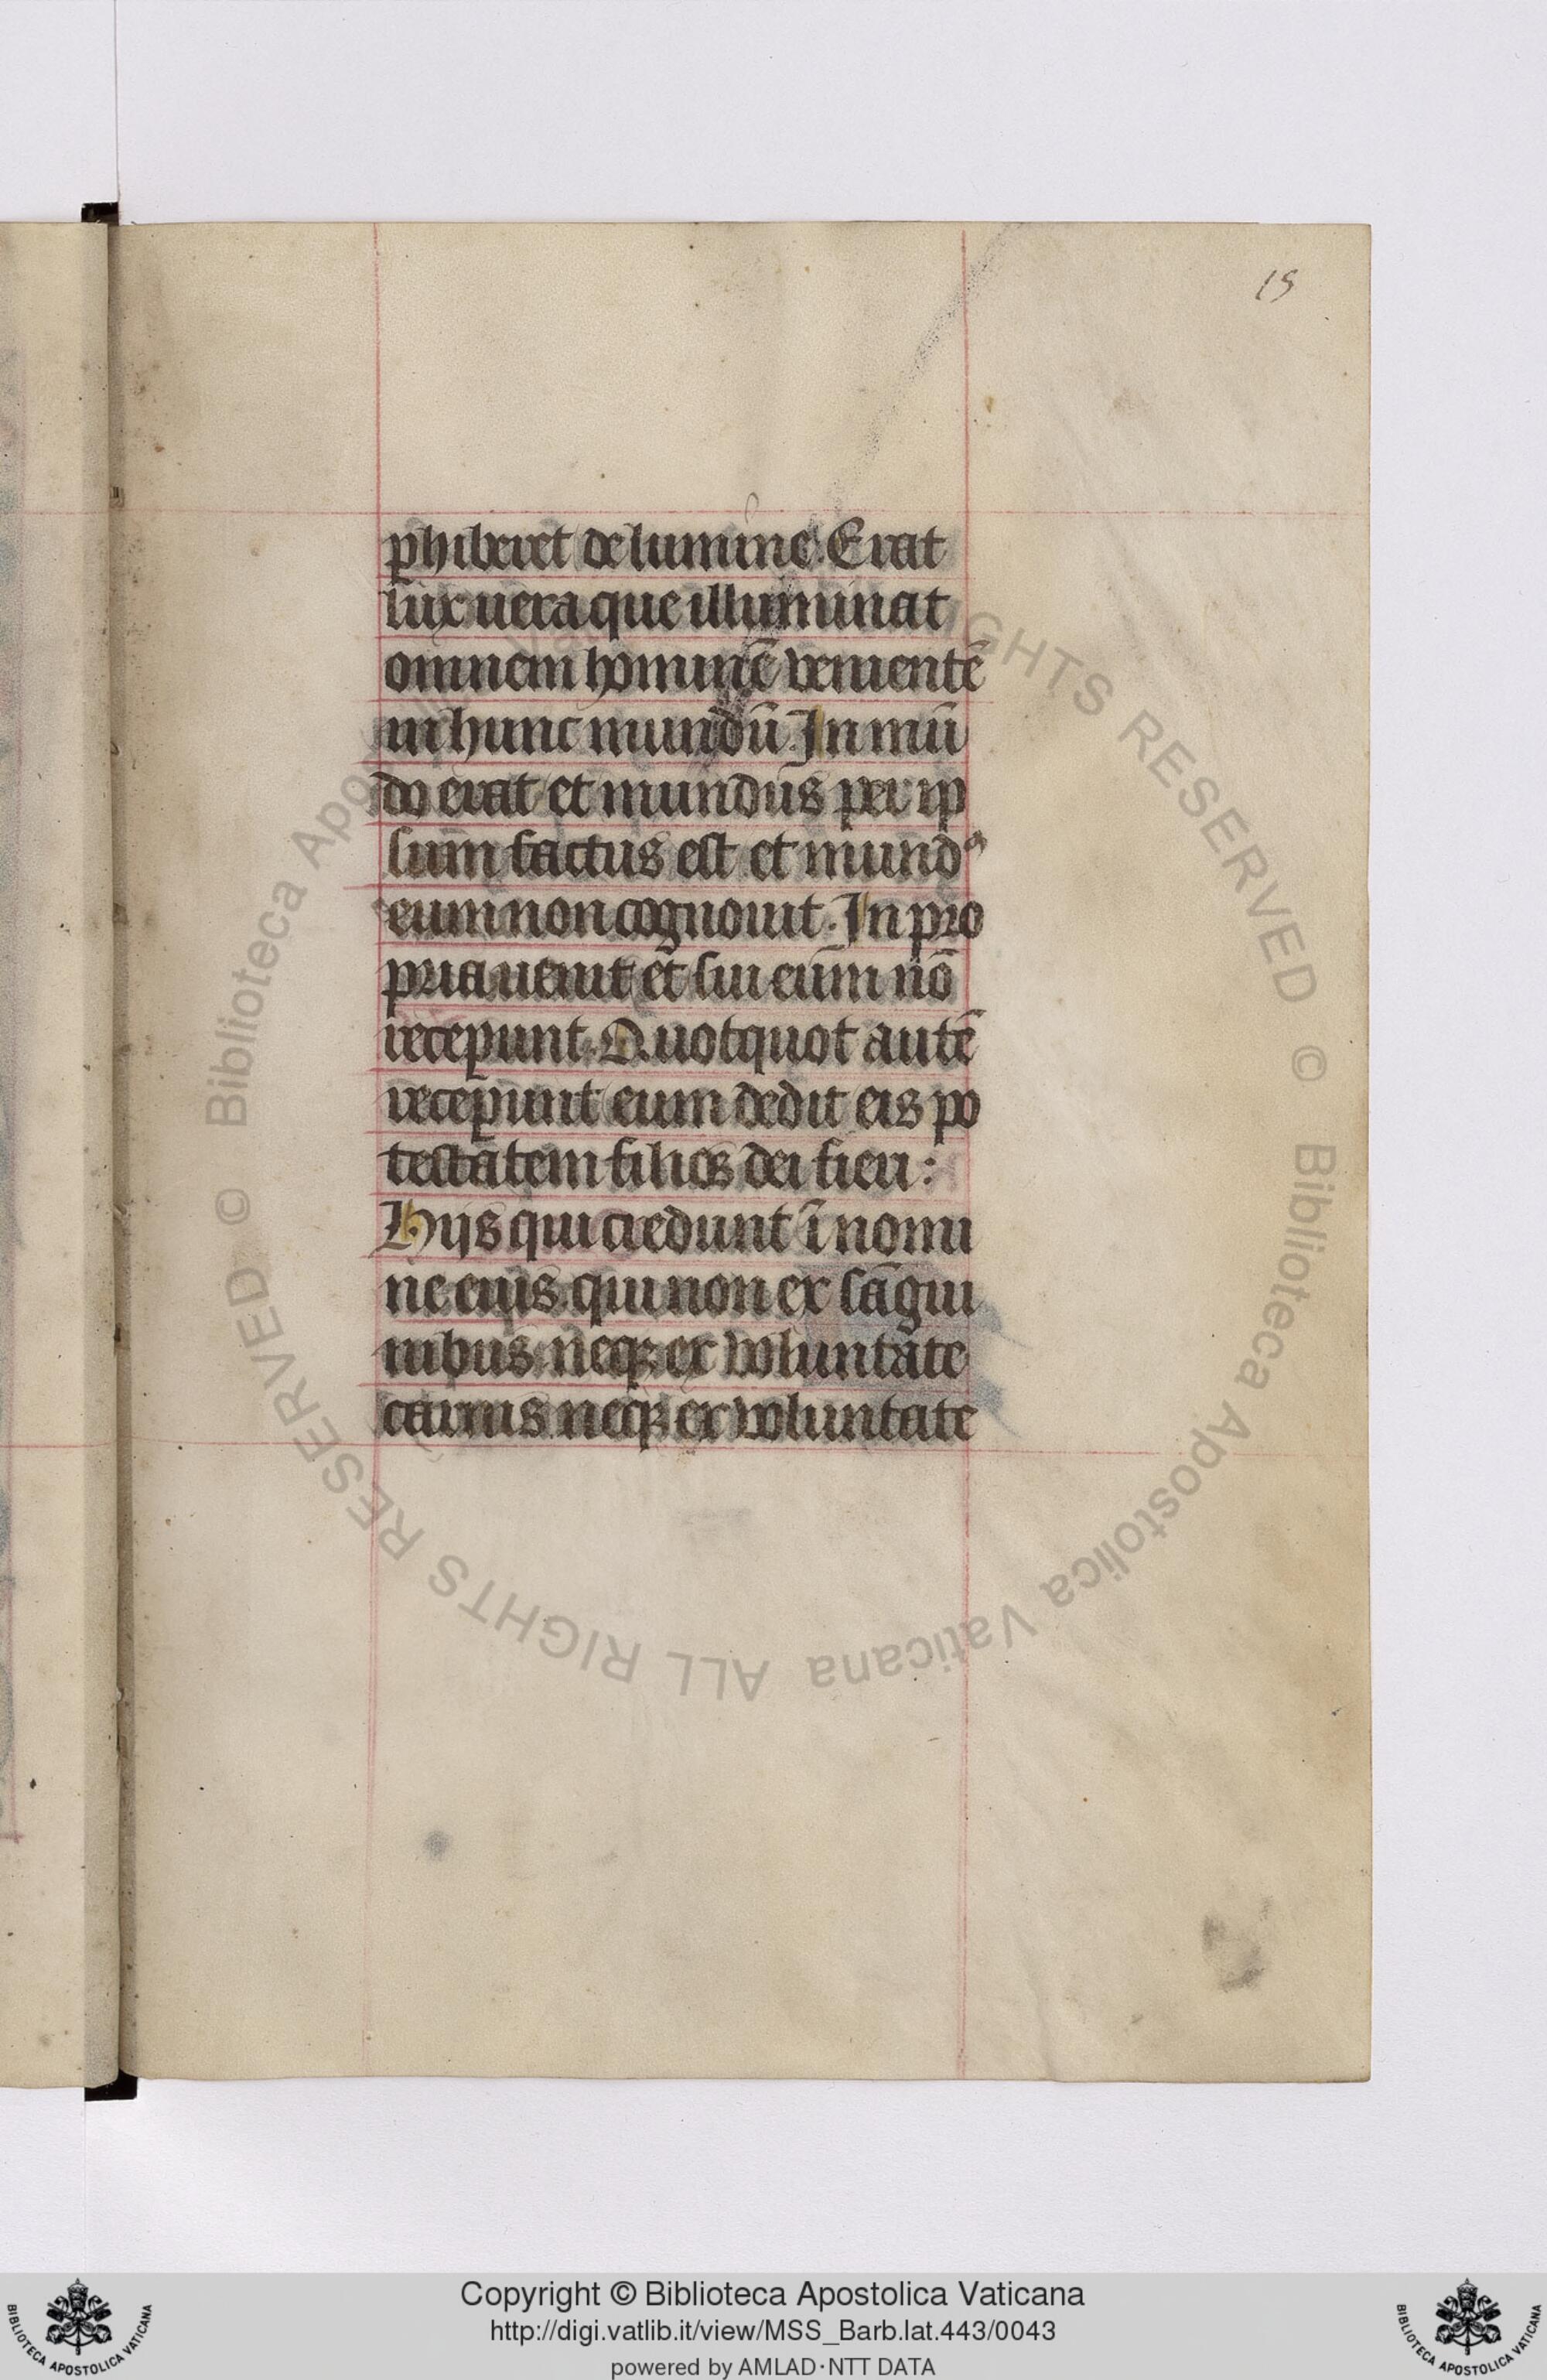 15
ꝑhiberet de lumine. Erat
lux uera que illuminat
omnem hominē venientē
in hunc mundū. In mū
do erat et mundus per ip
sum factus est et mundꝰ
eum non cognouit. In pro
pria uenit et sui eum nō
receꝑunt. Quotquot autē
receꝑunt eum dedit eis po
testatem filios dei fieri:
Hijs qui credunt ī nomi
ne eius. qui non ex sāgui
nibus. neqꝫ ex voluntate
carnis neqꝫ ex voluntate
© Biblioteca Apostolica Vaticana ALL RIGHTS RESERVED © Biblioteca Apostolica Vaticana ALL RIGHTS RESERVED
Copyright © Biblioteca Apostolica Vaticana
http://digi.vatlib.it/view/MSS_Barb.lat.443/0043
powered by AMLAD·NTT DATA
BIBLIOTECA APOSTOLICA VATICANA
BIBLIOTECA APOSTOLICA VATICANA